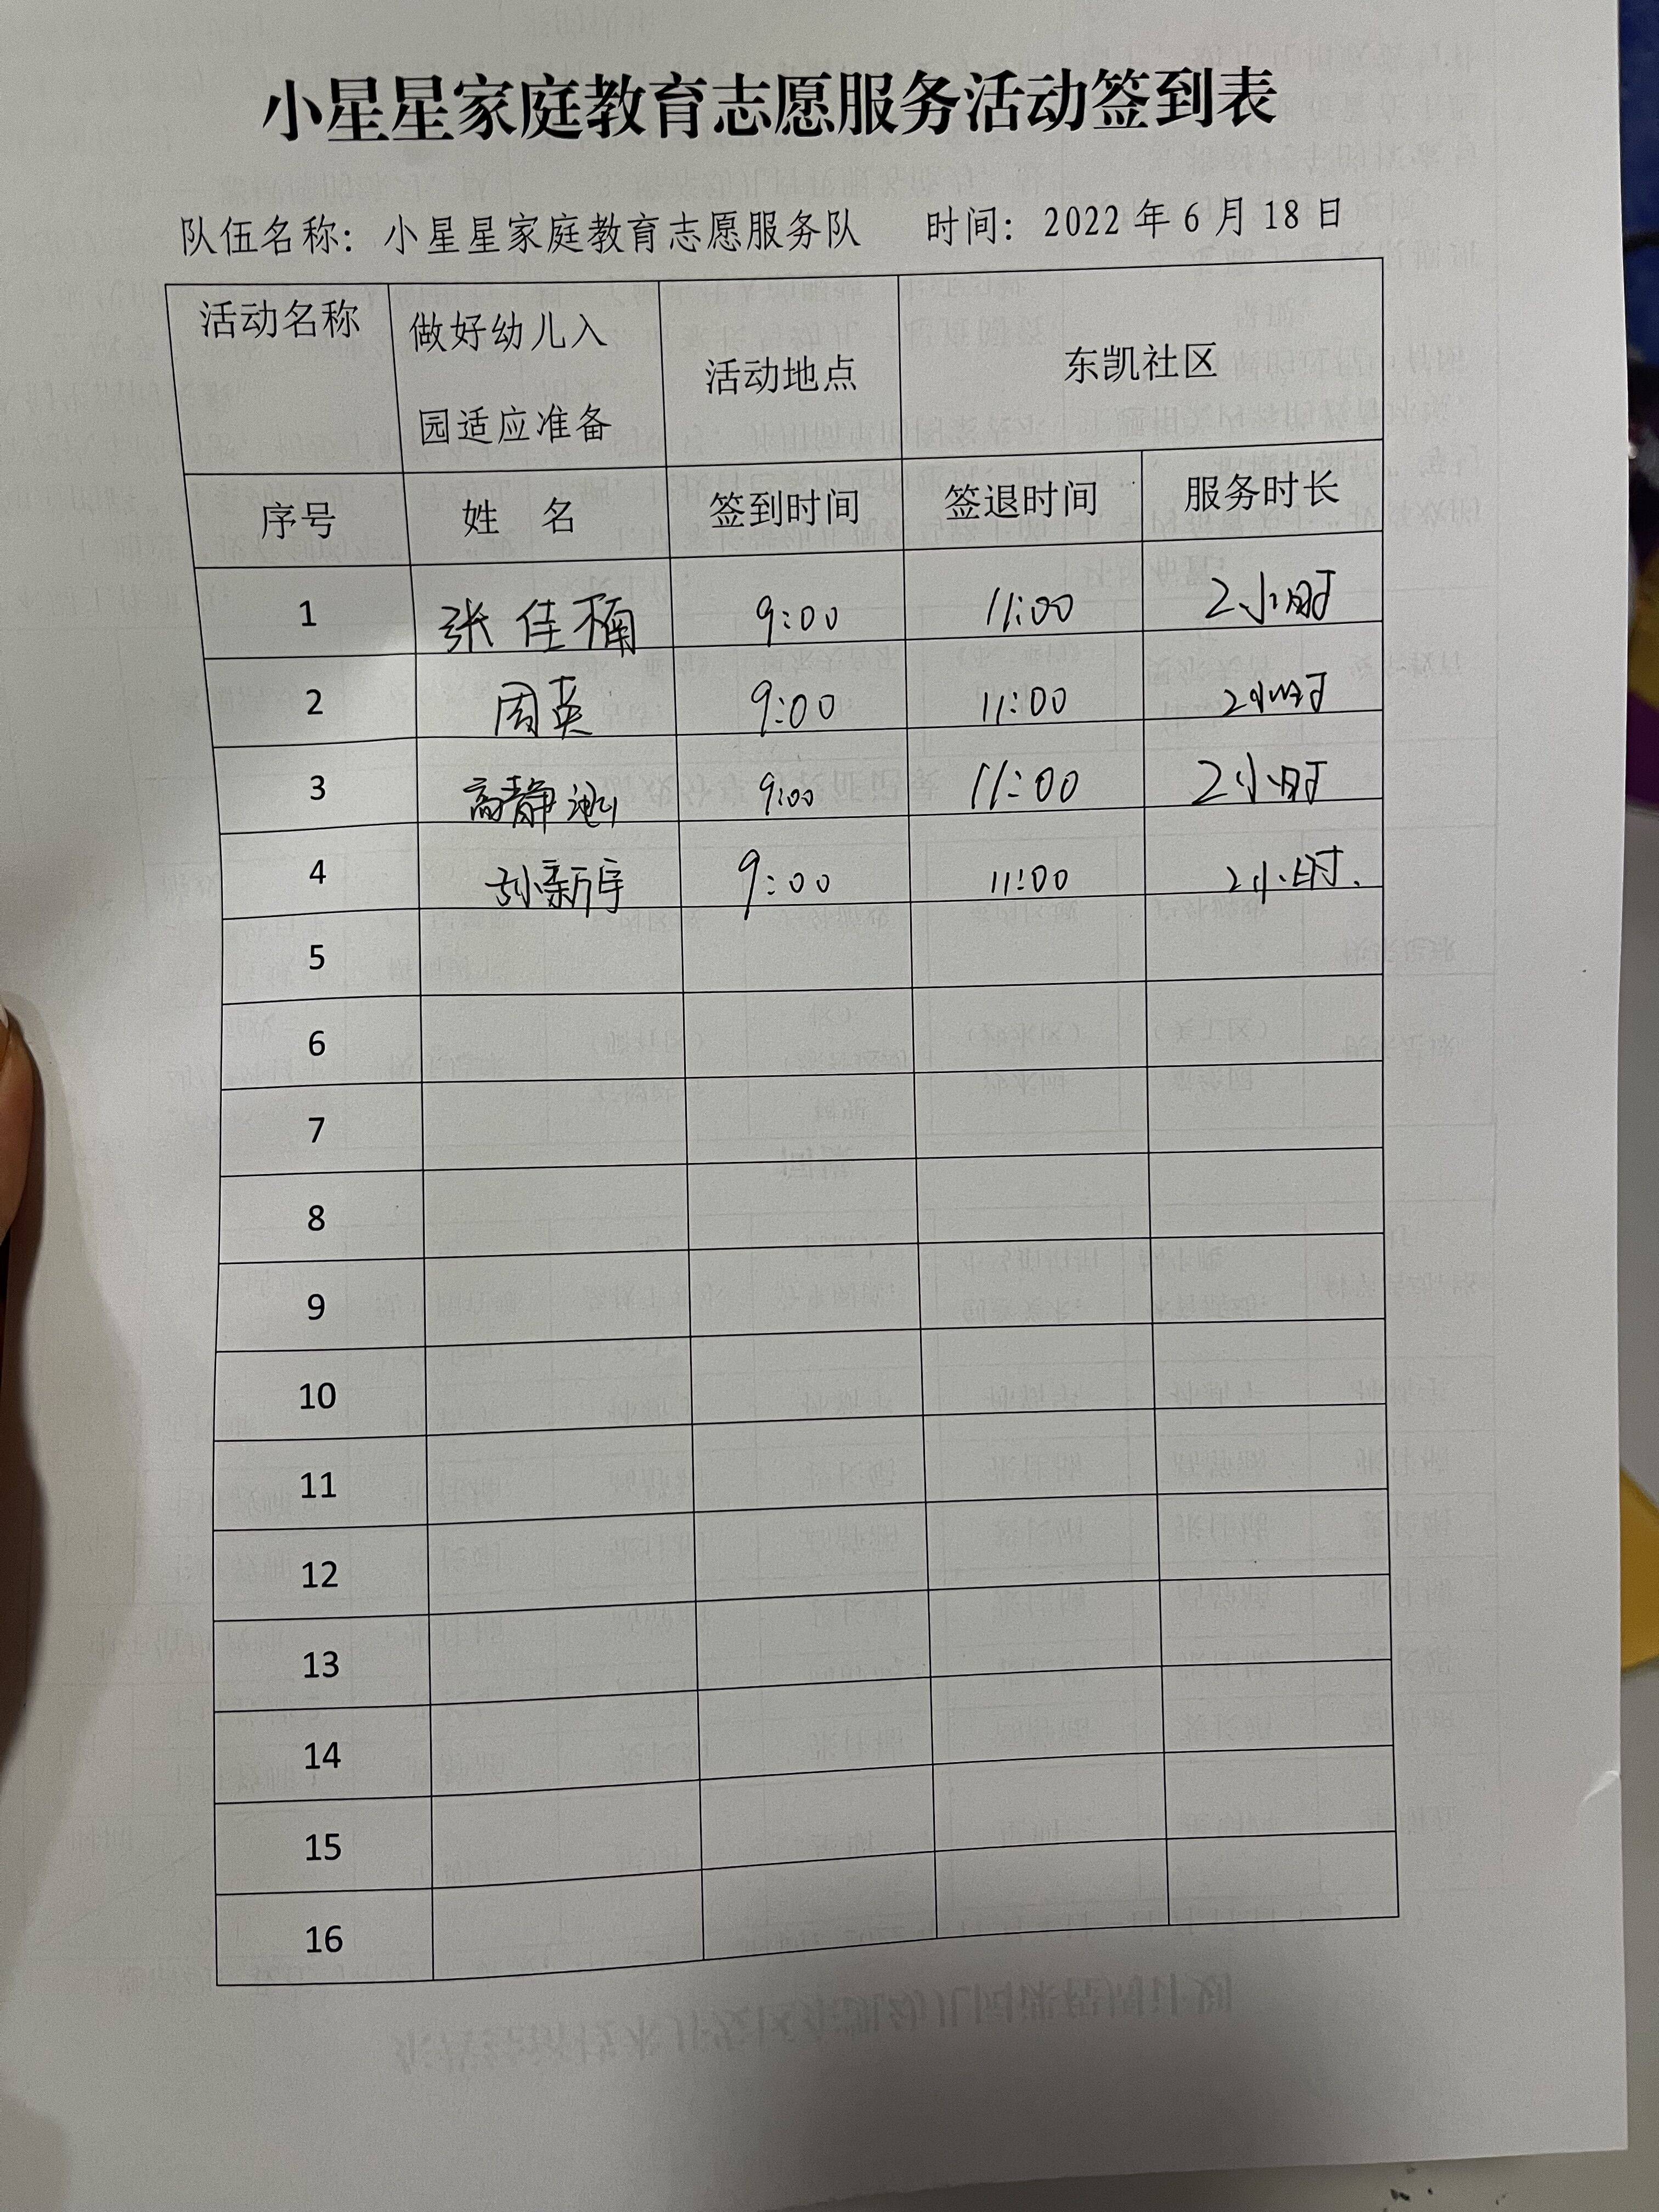 小星星家庭教育志愿服务活动签到表
队伍名称：小星星家庭教育志愿服务队 时间：2022 年 6 月 18 日
活动名称 做好幼儿入园适应准备 活动地点 东凯社区
序号 姓 名 签到时间 签退时间 服务时长
1 张佳楠 9:00 11:00 2小时
2 周英 9:00 11:00 2小时
3 高静 9:00 11:00 2小时
4 孙新宇 9:00 11:00 2小时.
5
6
7
8
9
10
11
12
13
14
15
16